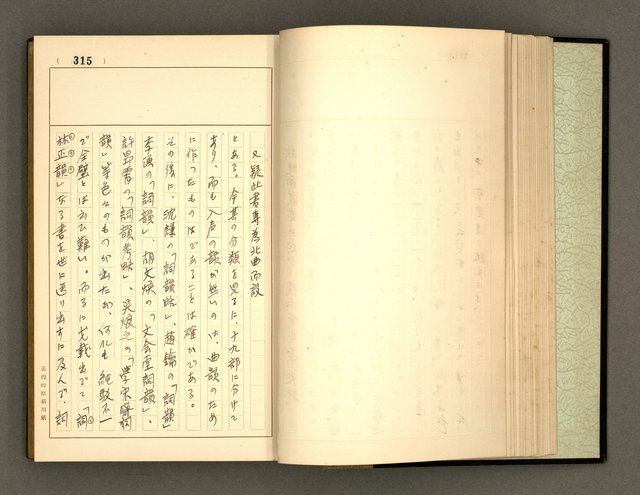 ( 315 )
又疑此書專為北曲而設
とある。今其の分類を見るに、十九部に分けて
あり、而も入声の韻が無いのは、曲韻のため
に作つたものであることは確かである。
その後に、沈謙の「詞韻略」、趙鑰の「詞韻」
李漁の「詞韻」、胡文煥の「文会堂詞韻」、
許昂霄の「詞韻考略」、呉烺之の「学宋斎詞
韻」等色々のものが出たが、何れも純駁不一
で全璧とは云ひ難い。而るに戈載出でて「詞
林正韻」なる書を世に送り出すに及んで、詞